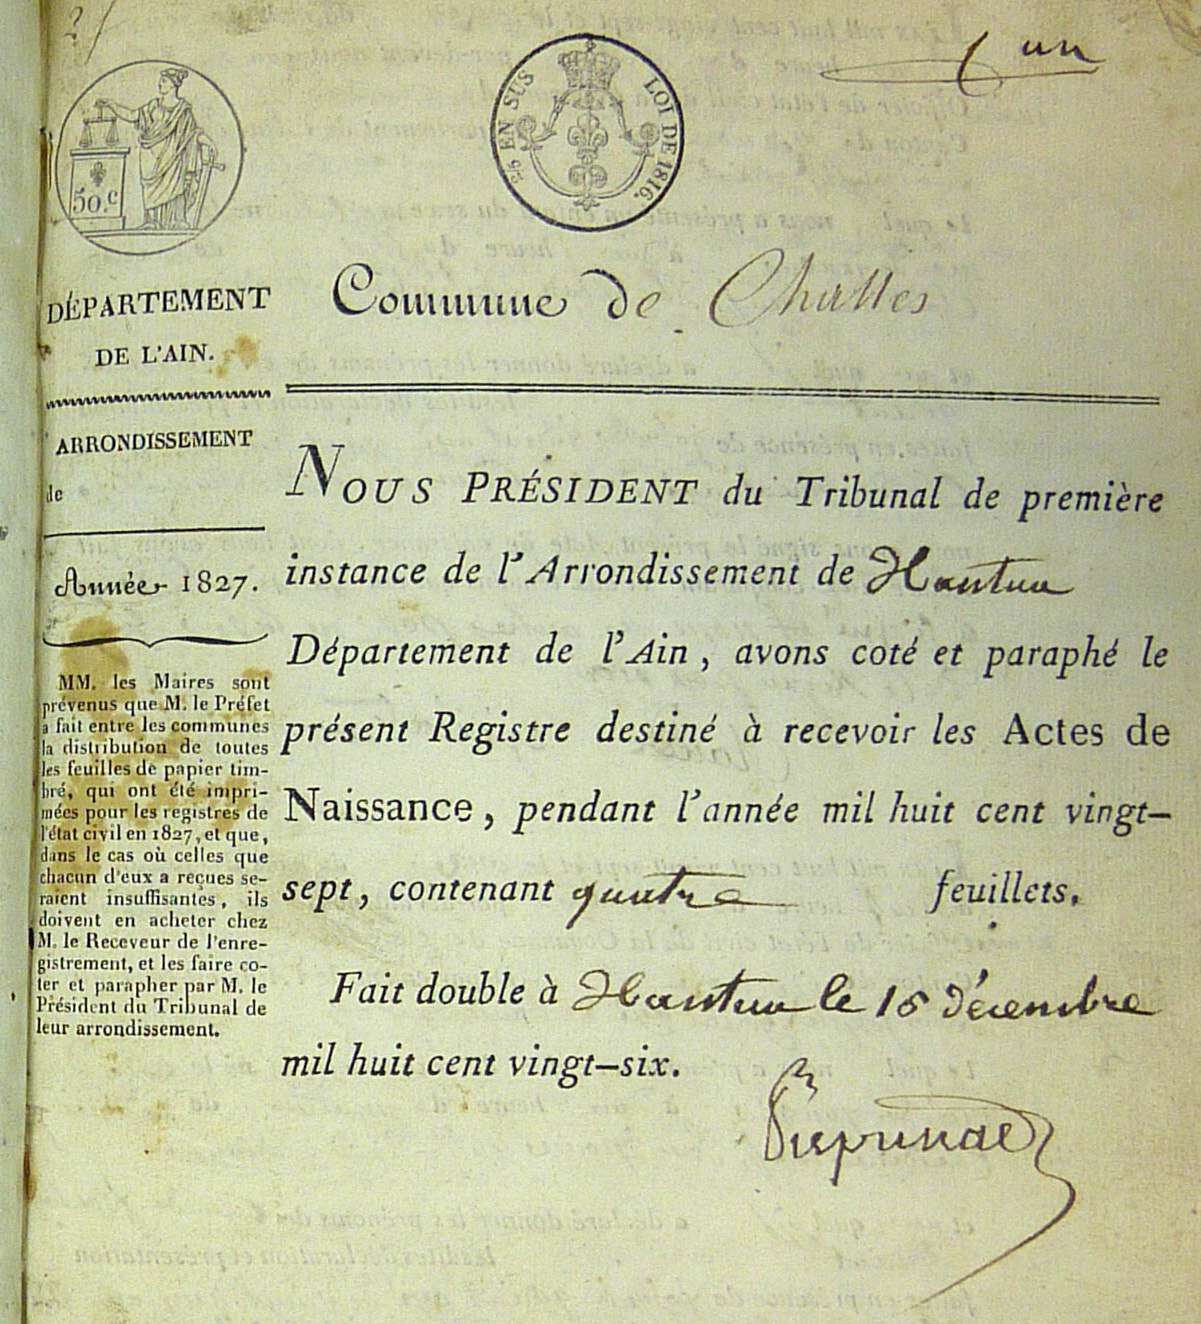 un
50.c
5/6 EN SUS
LOI DE 1816.
DÉPARTEMENT
DE L'AIN.
ARRONDISSEMENT
de
Année 1827.
MM. les Maires sont
prévenus que M. le Préfet
a fait entre les communes
la distribution de toutes
les feuilles de papier tim-
bré, qui ont été impri-
mées pour les registres de
l'état civil en 1827, et que,
dans le cas où celles que
chacun d'eux a reçues se-
raient insuffisantes, ils
doivent en acheter chez
M. le Receveur de l'enre-
gistrement, et les faire co-
ter et parapher par M. le
Président du Tribunal de
leur arrondissement.
Commune de Challes
NOUS PRÉSIDENT du Tribunal de première
instance de l'Arrondissement de Nantua
Département de l'Ain, avons coté et paraphé le
présent Registre destiné à recevoir les Actes de
Naissance, pendant l'année mil huit cent vingt-
sept, contenant quatre feuillets.
Fait double à Nantua le 16 décembre
mil huit cent vingt-six.